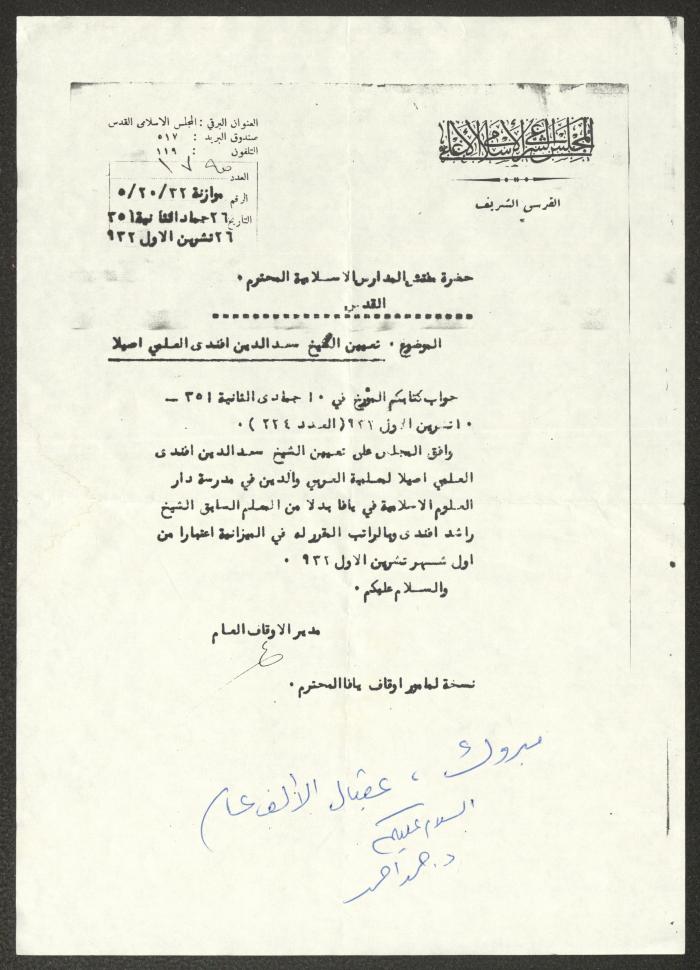 المجلس الشرعي الإسلامي الأعلى
القدس الشريف
العنوان البرقي : المجلس الاسلامي القدس
صندوق البريد : ٥١٧
التلفون : ١١٩
العدد
الرقم موازنة ٥/٢٠/٣٢
التاريخ ٢٦ جماد الثانية ٣٥١
٢٦ تشرين الاول ٩٣٢
حضرة مفتش المدارس الاسلامية المحترم ٠
القدس
الموضوع ٠ تعيين الشيخ سعد الدين افندى العلمي اصيلا
جواب كتابكم المؤرخ في ١٠ جمادى الثانية ٣٥١ —
١٠ تشرين الاول ٩٣٢ ( العدد ٢٢٤ ) ٠
وافق المجلس على تعيين الشيخ سعد الدين افندى
العلمي اصيلا لتعليم العربي والدين في مدرسة دار
العلوم الاسلامية في يافا بدلا من المعلم السابق الشيخ
راشد افندى وبالراتب المقرر له في الميزانية اعتبارا من
اول شهر تشرين الاول ٩٣٢ ٠
والسلام عليكم ٠
مدير الاوقاف العام
نسخة لمامور اوقاف يافا المحترم ٠
مبروك ، عقبال الألف عام
السلام عليكم